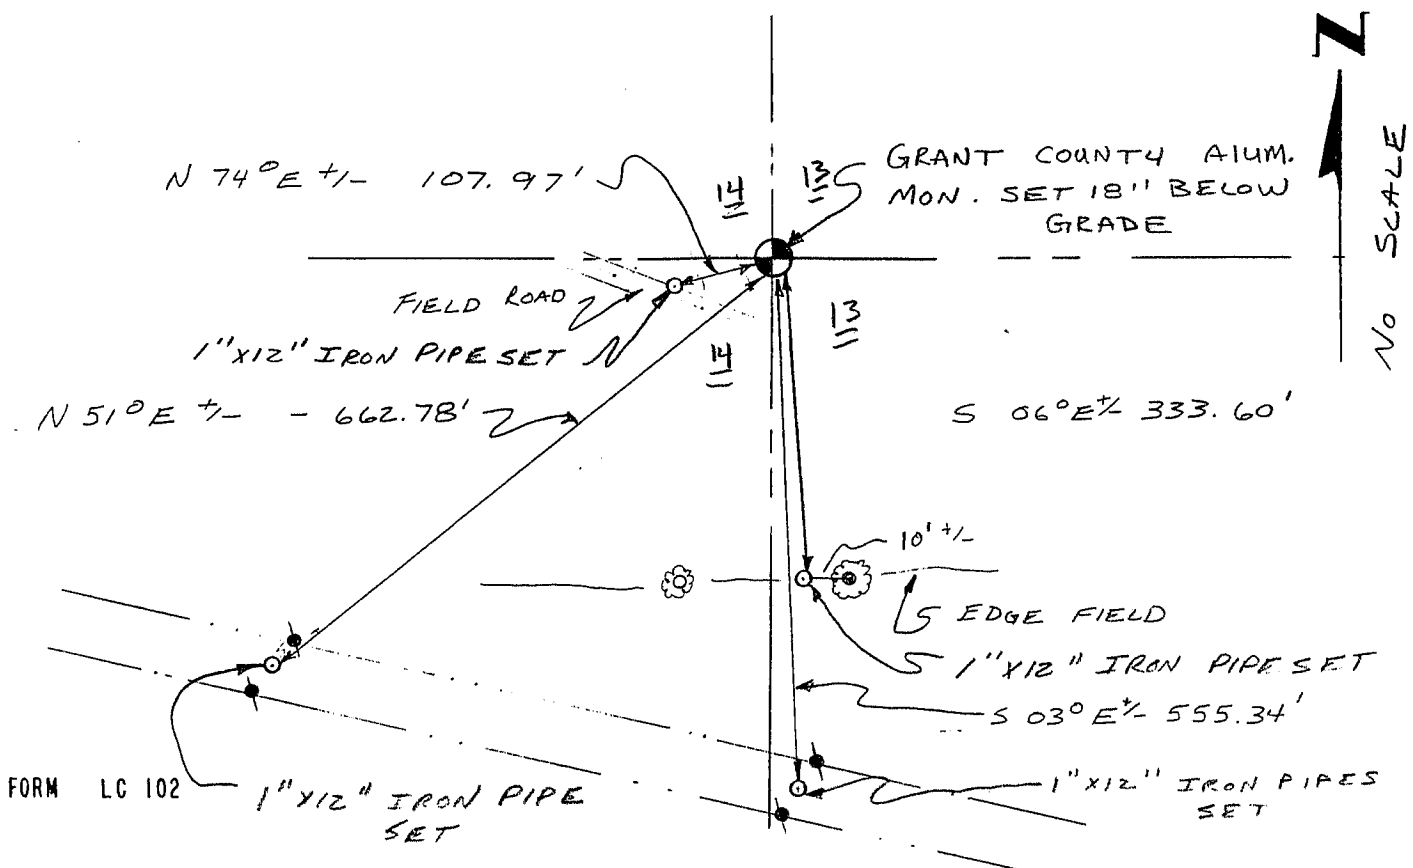 N
NO SCALE
GRANT COUNTY ALUM.
MON. SET 18" BELOW
GRADE
N 74°E +/- 107.97'
14
13
FIELD ROAD
1"X12" IRON PIPE SET
13
14
N 51°E +/- - 662.78'
S 06°E +/- 333.60'
10' +/-
EDGE FIELD
1"X12" IRON PIPE SET
S 03°E +/- 555.34'
1"X12" IRON PIPES
SET
FORM LC 102
1"X12" IRON PIPE
SET